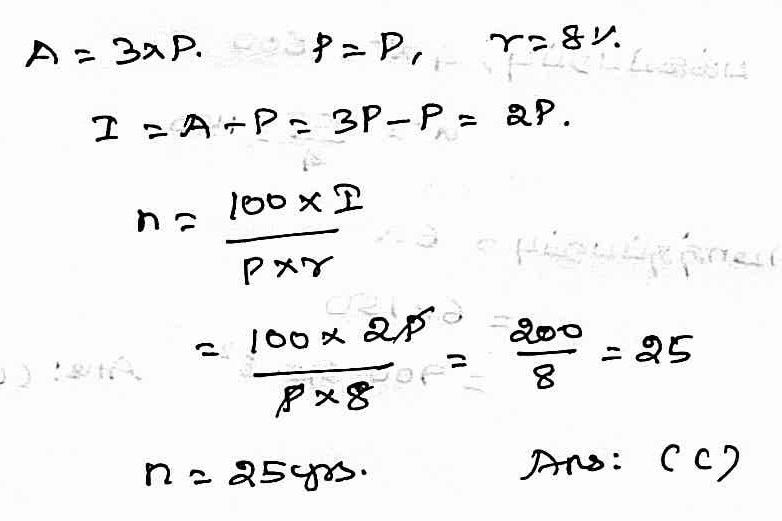 A = 3xP. P = P, r = 8%.
I = A - P = 3P - P = 2P.
n = 100 x I / P x r
= 100 x 2P / P x 8 = 200 / 8 = 25
n = 25 yrs. Ans: (C)